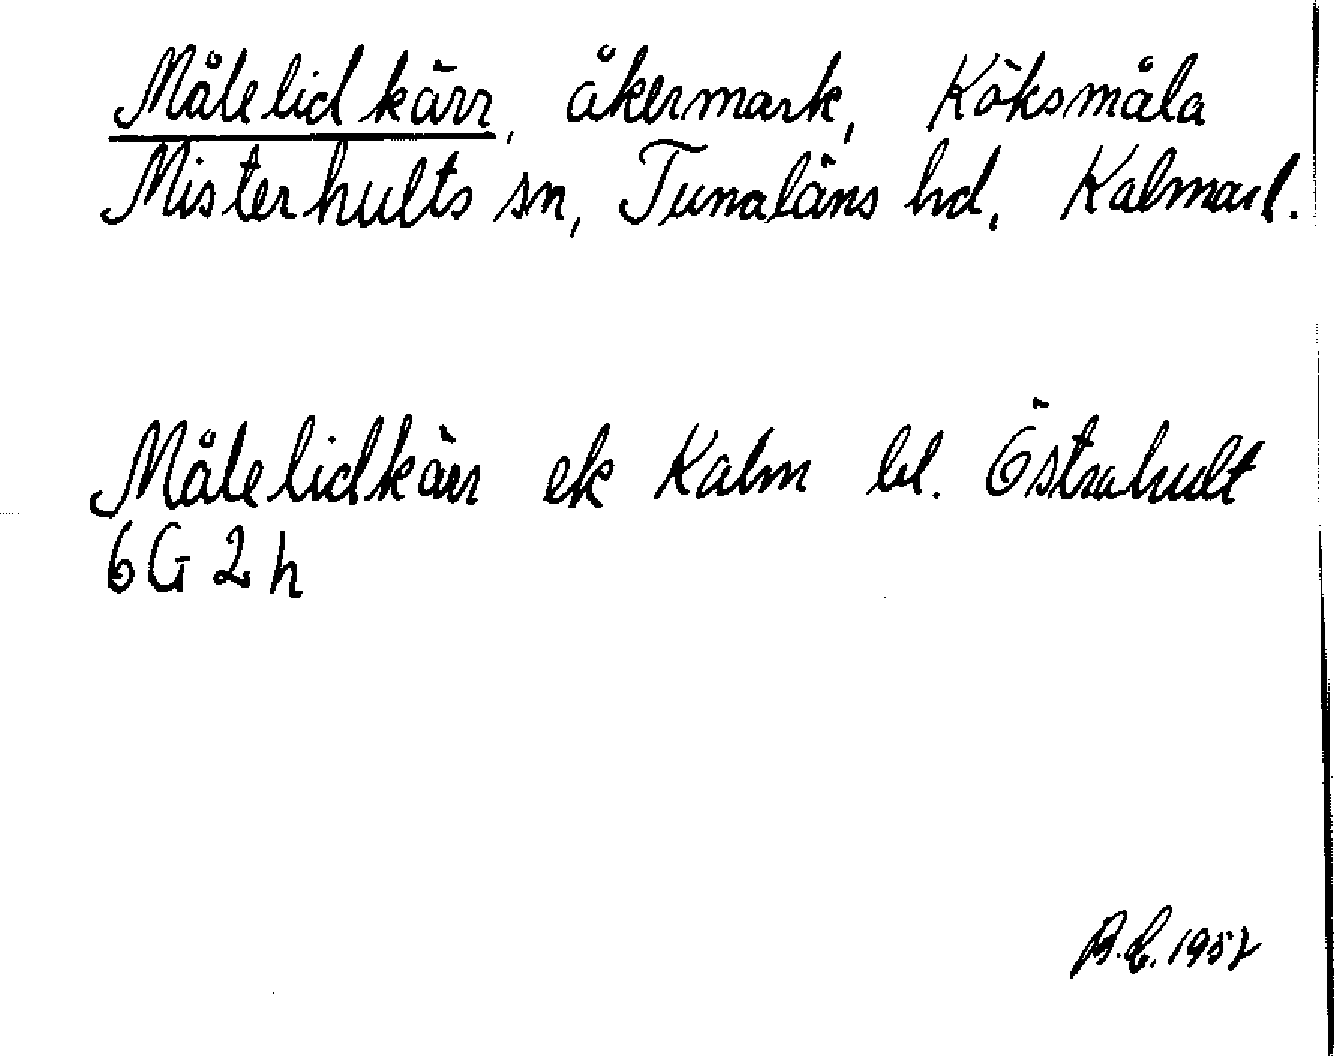 Målelidkärr, åkermark, Köksmåla
Misterhults sn, Tunaläns hd. Kalmarl.
Målelidkärr ek Kalm bl. Östrahult
6G 2h
1957